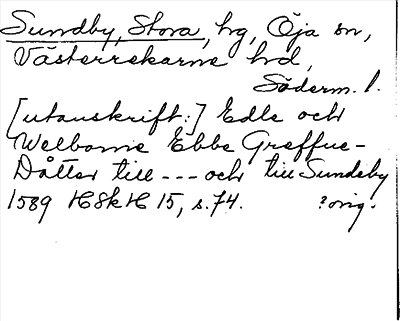 Sundby, Stora, hg, Öja sn,
Västerrekarne hd,
Söderm. l.
[utanskrift:] Edle och
Welborne Ebbe Greffue-
Dåtter till --- och till Sundeby
1589 HSkH 15, s.74. ?orig.